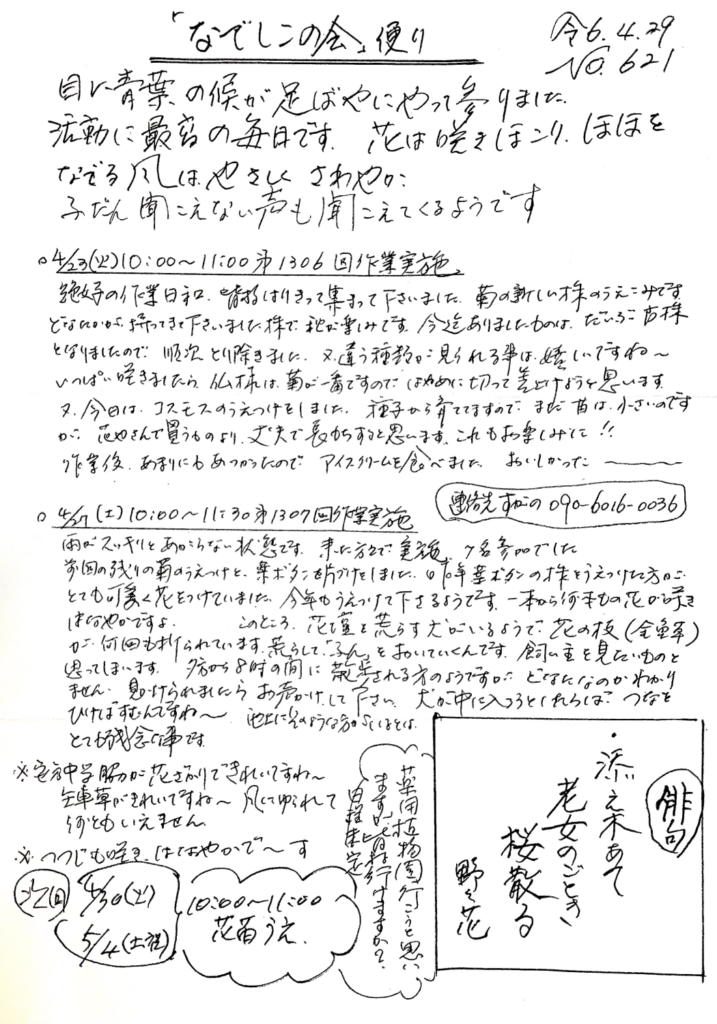 「なでしこの会」便り
令6.4.29
NO.621
目に青葉の候が足ばやにやって参りました。
活動に最高の毎日です。花は咲きほこり、ほほを
なでる風は、やさしく さわやか
ふだん聞こえない声も聞こえてくるようです
○4/23(火)10:00〜11:00 第1306回作業実施。
絶好の作業日和、皆様はりきって集まって下さいました。菊の新しい株のうえこみです。
どなたかが、持ってきて下さいました株で 秋が楽しみです。今迄ありましたものは、だいぶ古株
となりましたので 順次とり除きました。又違う種類が見られる事は、嬉しいですね〜
いっぱい咲きましたら 仏様は、菊が一番ですので はやめに切って差上げようと思います。
又、今日は、コスモスのうえつけをしました。種子から育ててますので まだ苗は、小さいのです
が、花やさんで買うものより、丈夫で長もちすると思います。これもお楽しみに!!
作業後、あまりにもあつかったので アイスクリームを食べました。おいしかった〜
○4/27(土)10:00〜11:30 第1307回作業実施
連絡先 すがの 090-6016-0036
雨がスッキリとあがらない状態です。来た方々で実施、7名参加でした
前回の残りの菊のうえつけと、葉ボタンを片づけをしました。昨年葉ボタンの株をうえつけた方が
とても可愛く花をつけていました。今年もうえつけて下さるようです。一本から何本もの花が咲き
はなやかですよ。 このところ、花壇を荒らす犬がいるようで、花の枝(金魚草)
が、何回も折られています。荒らして、ふんをおいていくんです。飼い主を見たいものと
思ってしまいます。 夕方から8時の間に散歩される方のようですが、どなたなのかわかり
ません。見かけられましたら お声かけして下さい。犬が中に入ろうとしたらば、つなを
ひけばすむんですね〜
とても残念な事です。
※ 中学脇が花ざかりできれいですね〜
矢車草がきれいですね〜 風にゆられて
何ともいえません。
※ つつじも咲き、はなやかで〜す
4/30(火)
5/4(土・祝)
10:00〜11:00
花苗うえ
薬用植物園行こうと思い
ますが、皆様行けますか?
日程未定
俳句
・添え木あて
老女のごとき
桜散る
野々花